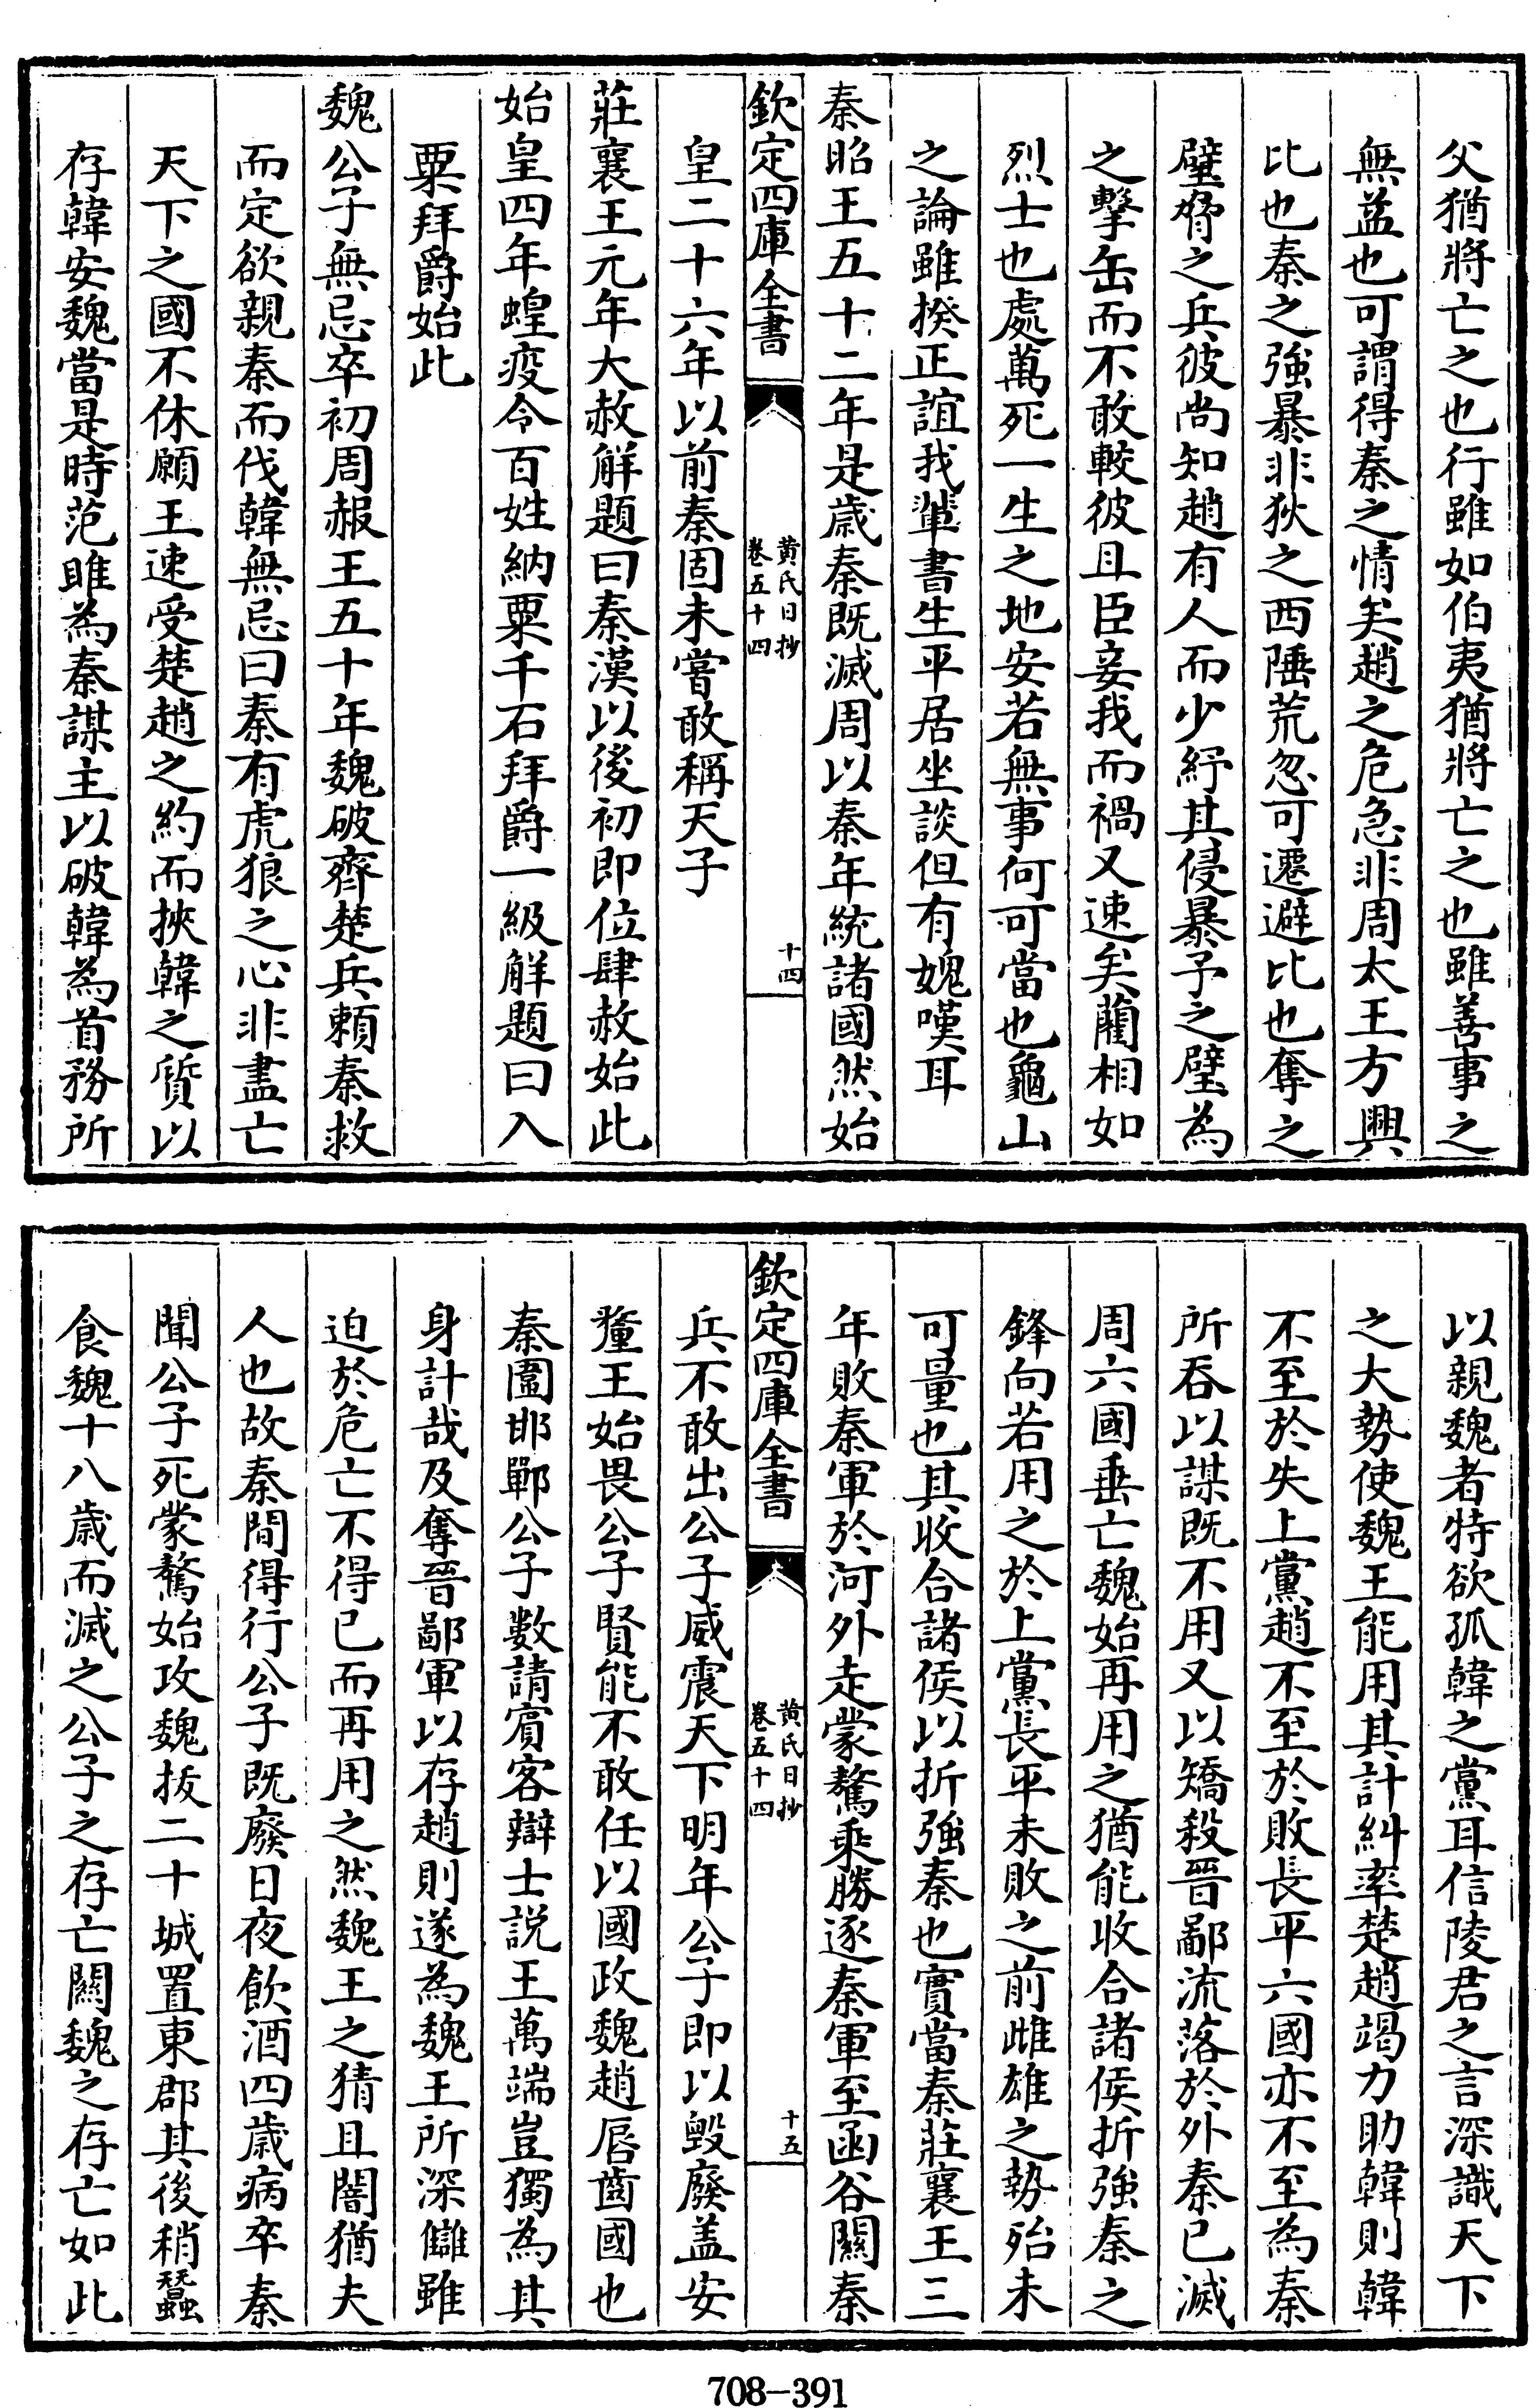 父猶將亡之也行雖如伯夷猶將亡之也雖善事之
無益也可謂得秦之情矣趙之危急非周太王方興
比也秦之強暴非狄之西陲荒忽可遷避比也奪之
璧脅之兵彼尚知趙有人而少紓其侵暴予之璧為
之擊缶而不敢較彼且臣妾我而禍又速矣藺相如
烈士也處萬死一生之地安若無事何可當也龜山
之論雖揆正誼我輩書生平居坐談但有媿嘆耳
秦昭王五十二年是歲秦既滅周以秦年統諸國然始
欽定四庫全書
黄氏日抄
卷五十四
十四
皇二十六年以前秦固未嘗敢稱天子
莊襄王元年大赦解題曰秦漢以後初即位肆赦始此
始皇四年蝗疫令百姓納粟千石拜爵一級解題曰入
粟拜爵始此
魏公子無忌卒初周赧王五十年魏破齊楚兵賴秦救
而定欲親秦而伐韓無忌曰秦有虎狼之心非盡亡
天下之國不休願王速受楚趙之約而挾韓之質以
存韓安魏當是時范雎為秦謀主以破韓為首務所
以親魏者特欲孤韓之黨耳信陵君之言深識天下
之大勢使魏王能用其計糾率楚趙竭力助韓則韓
不至於失上黨趙不至於敗長平六國亦不至為秦
所吞以謀既不用又以矯殺晉鄙流落於外秦已滅
周六國垂亡魏始再用之猶能收合諸侯折強秦之
鋒向若用之於上黨長平未敗之前雌雄之勢殆未
可量也其收合諸侯以折強秦也實當秦莊襄王三
年敗秦軍於河外走蒙驁乘勝逐秦軍至函谷關秦
欽定四庫全書
黄氏日抄
卷五十四
十五
兵不敢出公子威震天下明年公子即以毀廢盖安
釐王始畏公子賢能不敢任以國政魏趙唇齒國也
秦圍邯鄲公子數請賓客辯士説王萬端豈獨為其
身計哉及奪晉鄙軍以存趙則遂為魏王所深讎雖
迫於危亡不得已而再用之然魏王之猜且闇猶夫
人也故秦間得行公子既廢日夜飲酒四歲病卒秦
聞公子死蒙驁始攻魏拔二十城置東郡其後稍蠶
食魏十八歲而滅之公子之存亡關魏之存亡如此
708-391